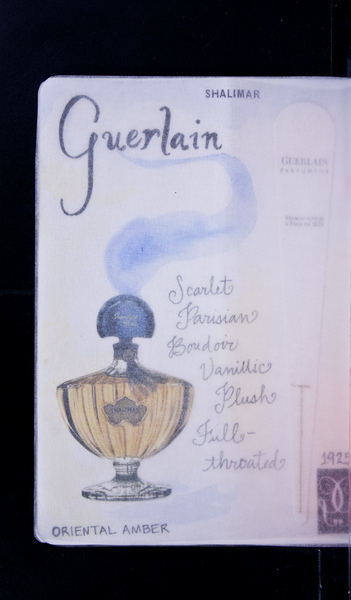 SHALIMAR
Guerlain
GUERLAIN
Scarlet
Parisian
Boudoir
Vanillic
Plush
Full-
throated
SHALIMAR
1925
ORIENTAL AMBER